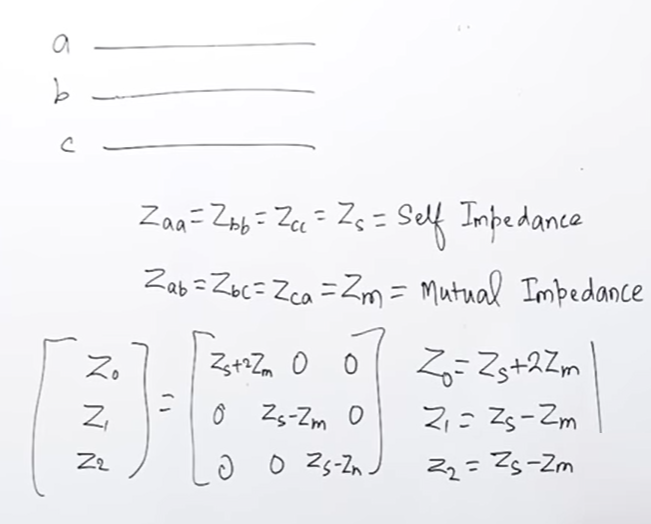 a
b
c
Zaa = Zbb = Zcc = Zs = Self Impedance
Zab = Zbc = Zca = Zm = Mutual Impedance
[Z0 Z1 Z2] = [Zs+2Zm 0 0
0 Zs-Zm 0
0 0 Zs-Zn]
Z0 = Zs+2Zm
Z1 = Zs-Zm
Z2 = Zs-Zm